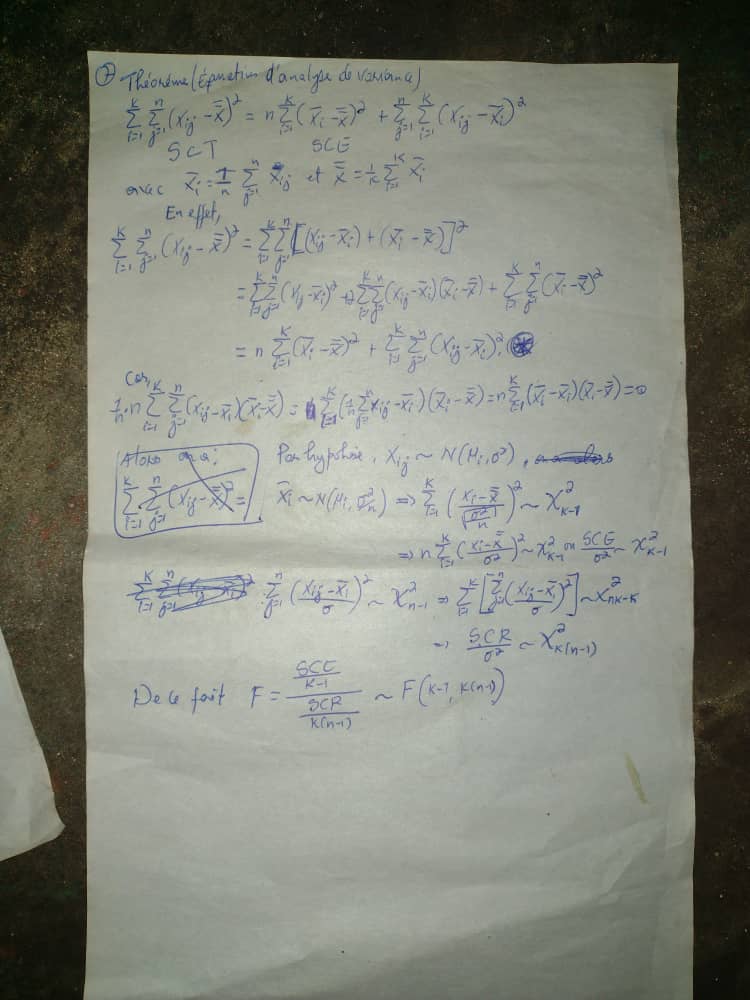 ⑦ Théorème (Équation d'analyse de variance)
∑_{i=1}^{k} ∑_{j=1}^{n} (x_{ij} - x̿)² = n ∑_{i=1}^{k} (x̄_i - x̿)² + ∑_{j=1}^{n} ∑_{i=1}^{k} (x_{ij} - x̄_i)²
SCT SCE
avec x̄_i = 1/n ∑_{j=1}^{n} x_{ij} et x̿ = 1/k ∑_{i=1}^{k} x̄_i
En effet,
∑_{i=1}^{k} ∑_{j=1}^{n} (x_{ij} - x̿)² = ∑_{i=1}^{k} ∑_{j=1}^{n} [(x_{ij} - x̄_i) + (x̄_i - x̿)]²
= ∑_{i=1}^{k} ∑_{j=1}^{n} (x_{ij} - x̄_i)² + 2 ∑_{i=1}^{k} ∑_{j=1}^{n} (x_{ij} - x̄_i)(x̄_i - x̿) + ∑_{i=1}^{k} ∑_{j=1}^{n} (x̄_i - x̿)²
= n ∑_{i=1}^{k} (x̄_i - x̿)² + ∑_{i=1}^{k} ∑_{j=1}^{n} (x_{ij} - x̄_i)².
Car,
1/n · n ∑_{i=1}^{k} ∑_{j=1}^{n} (x_{ij} - x̄_i)(x̄_i - x̿) = n ∑_{i=1}^{k} (1/n ∑_{j=1}^{n} x_{ij} - x̄_i)(x̄_i - x̿) = n ∑_{i=1}^{k} (x̄_i - x̄_i)(x̄_i - x̿) = 0
Alors on a :
∑_{i=1}^{k} ∑_{j=1}^{n} (x_{ij} - x̿)² =
Par hypothèse, X_{ij} ~ N(μ_i, σ²),
x̄_i ~ N(μ_i, σ²/n) ⇒ ∑_{i=1}^{k} ((x̄_i - x̿)/√(σ²/n))² ~ χ²_{k-1}
⇒ n ∑_{i=1}^{k} (x̄_i - x̿ / σ²)² ~ χ²_{k-1} ou SCE/σ² ~ χ²_{k-1}
∑_{j=1}^{n} ((x_{ij} - x̄_i)/σ)² ~ χ²_{n-1} ⇒ ∑_{i=1}^{k} [∑_{j=1}^{n} ((x_{ij} - x̄_i)/σ)²] ~ χ²_{nk-k}
⇒ SCR/σ² ~ χ²_{k(n-1)}
De ce fait F = (SCE/(k-1)) / (SCR/(k(n-1))) ~ F(k-1, k(n-1))